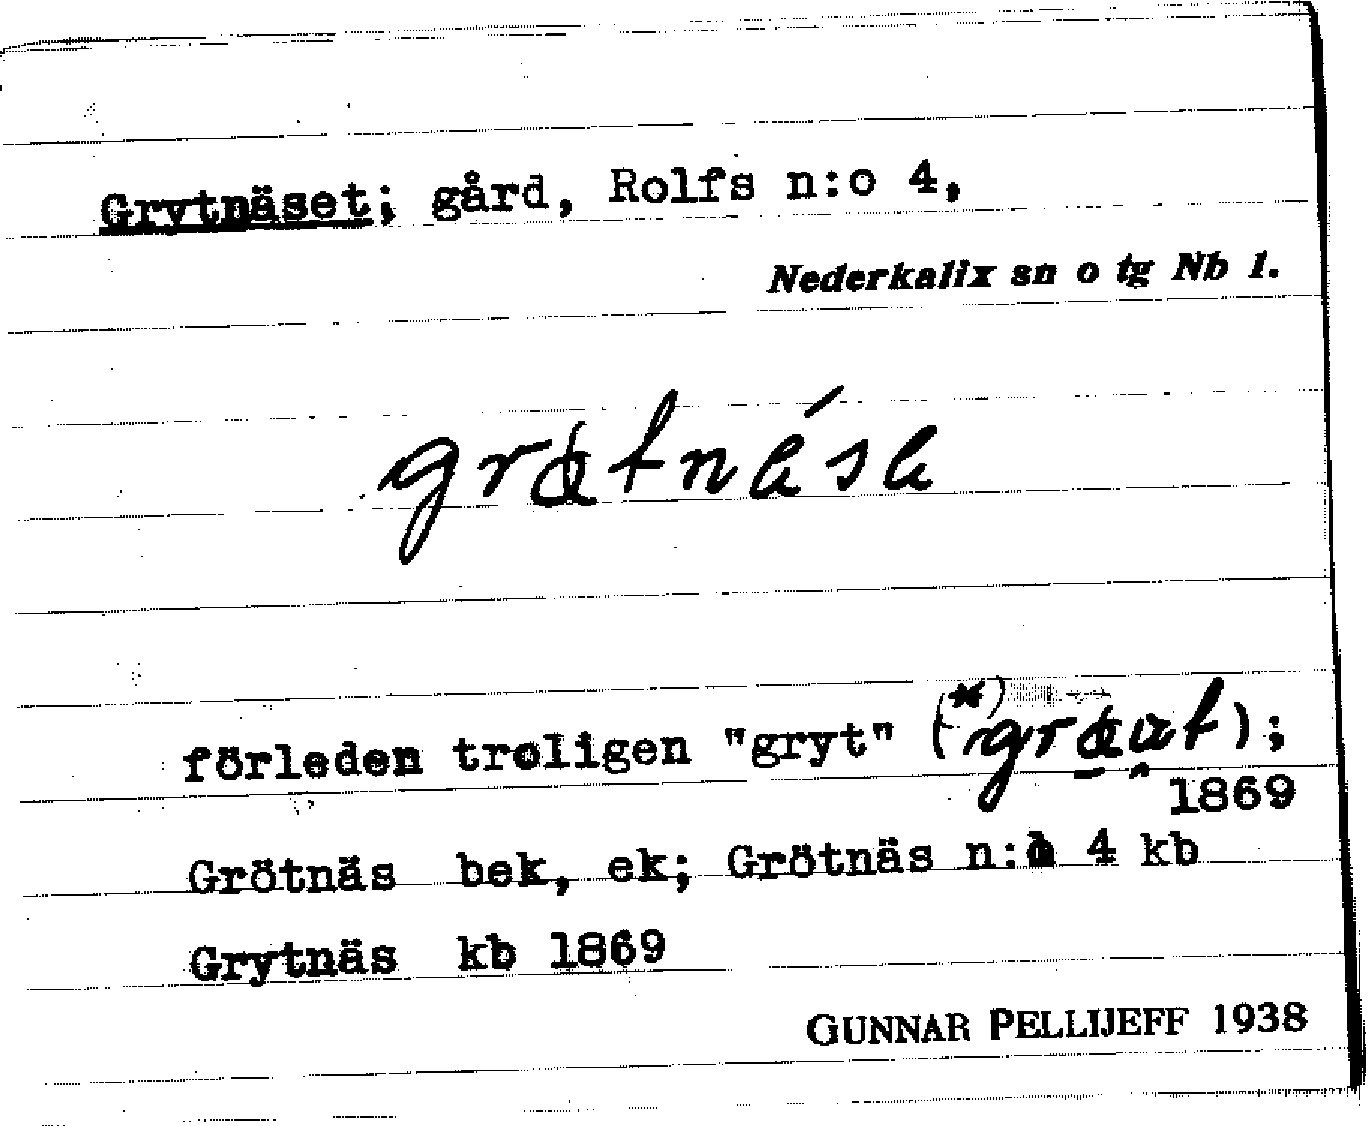 Grytnäset; gård, Rolfs n:o 4,
Nederkalix sn o tg Nb 1.
förleden troligen "gryt"
1869
Grötnäs bek, ek; Grötnäs n:o 4 kb
Grytnäs kb 1869
GUNNAR PELLIJEFF 1938